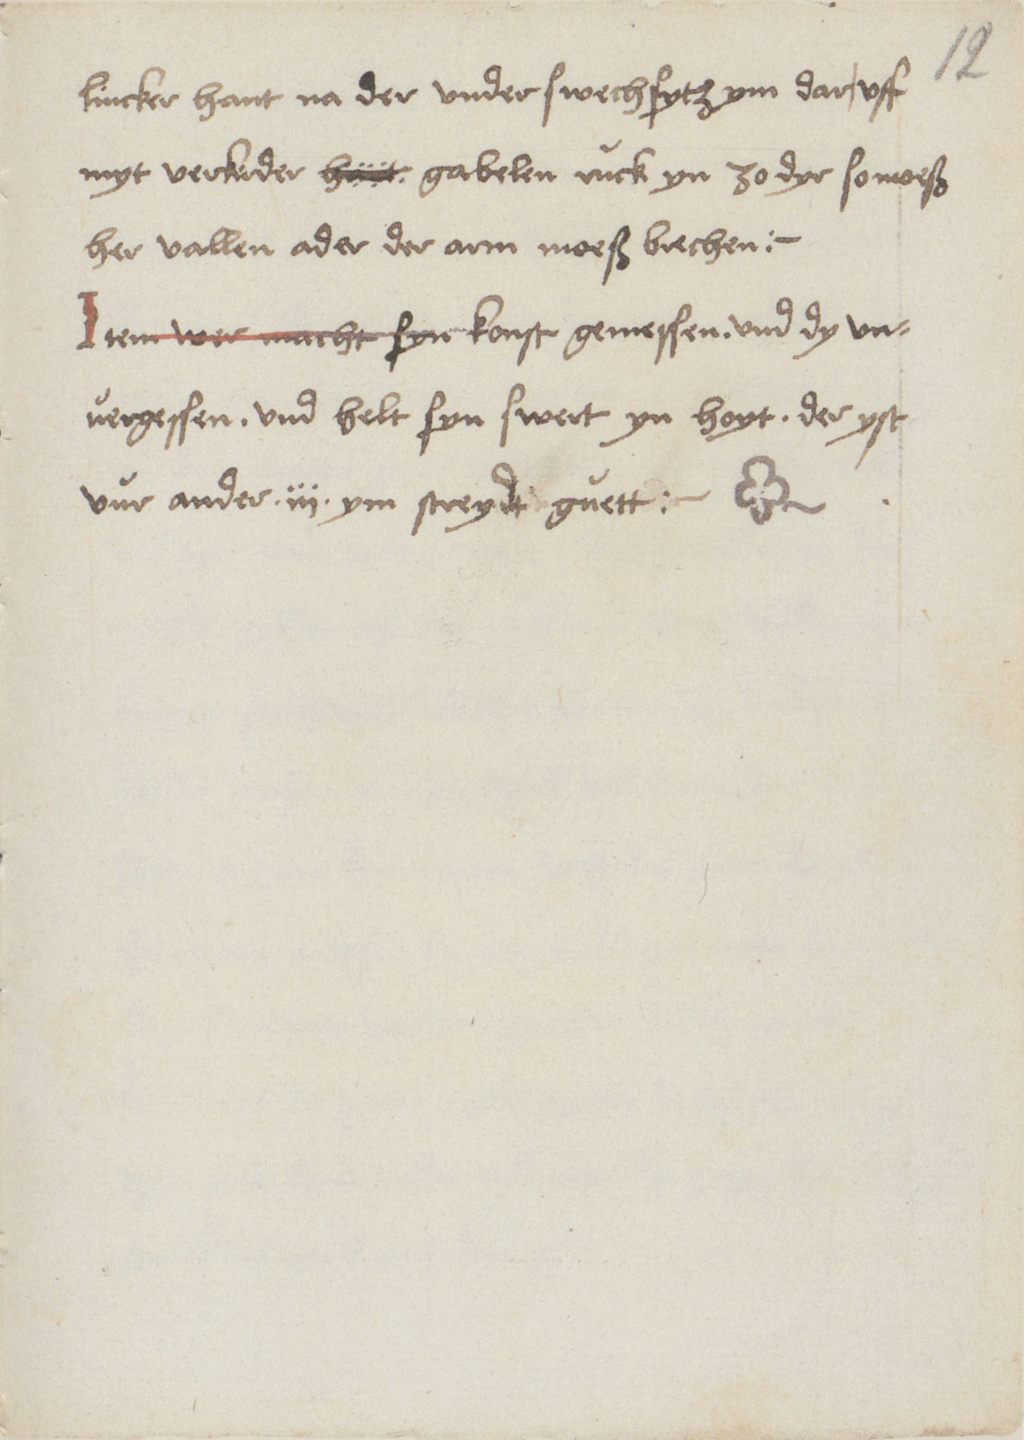 12
lincker hant na der vnder swech sytz ym dar vff
myt verkerder hant gabelen ruck yn zo dyr so moeß
her vallen ader der arm moeß brechen :-
Item wer macht syn konst gemessen. vnd dy vn-
vergessen. vnd helt syn swert yn hoyt. der yst
vur ander .iij. ym streydt guett :-